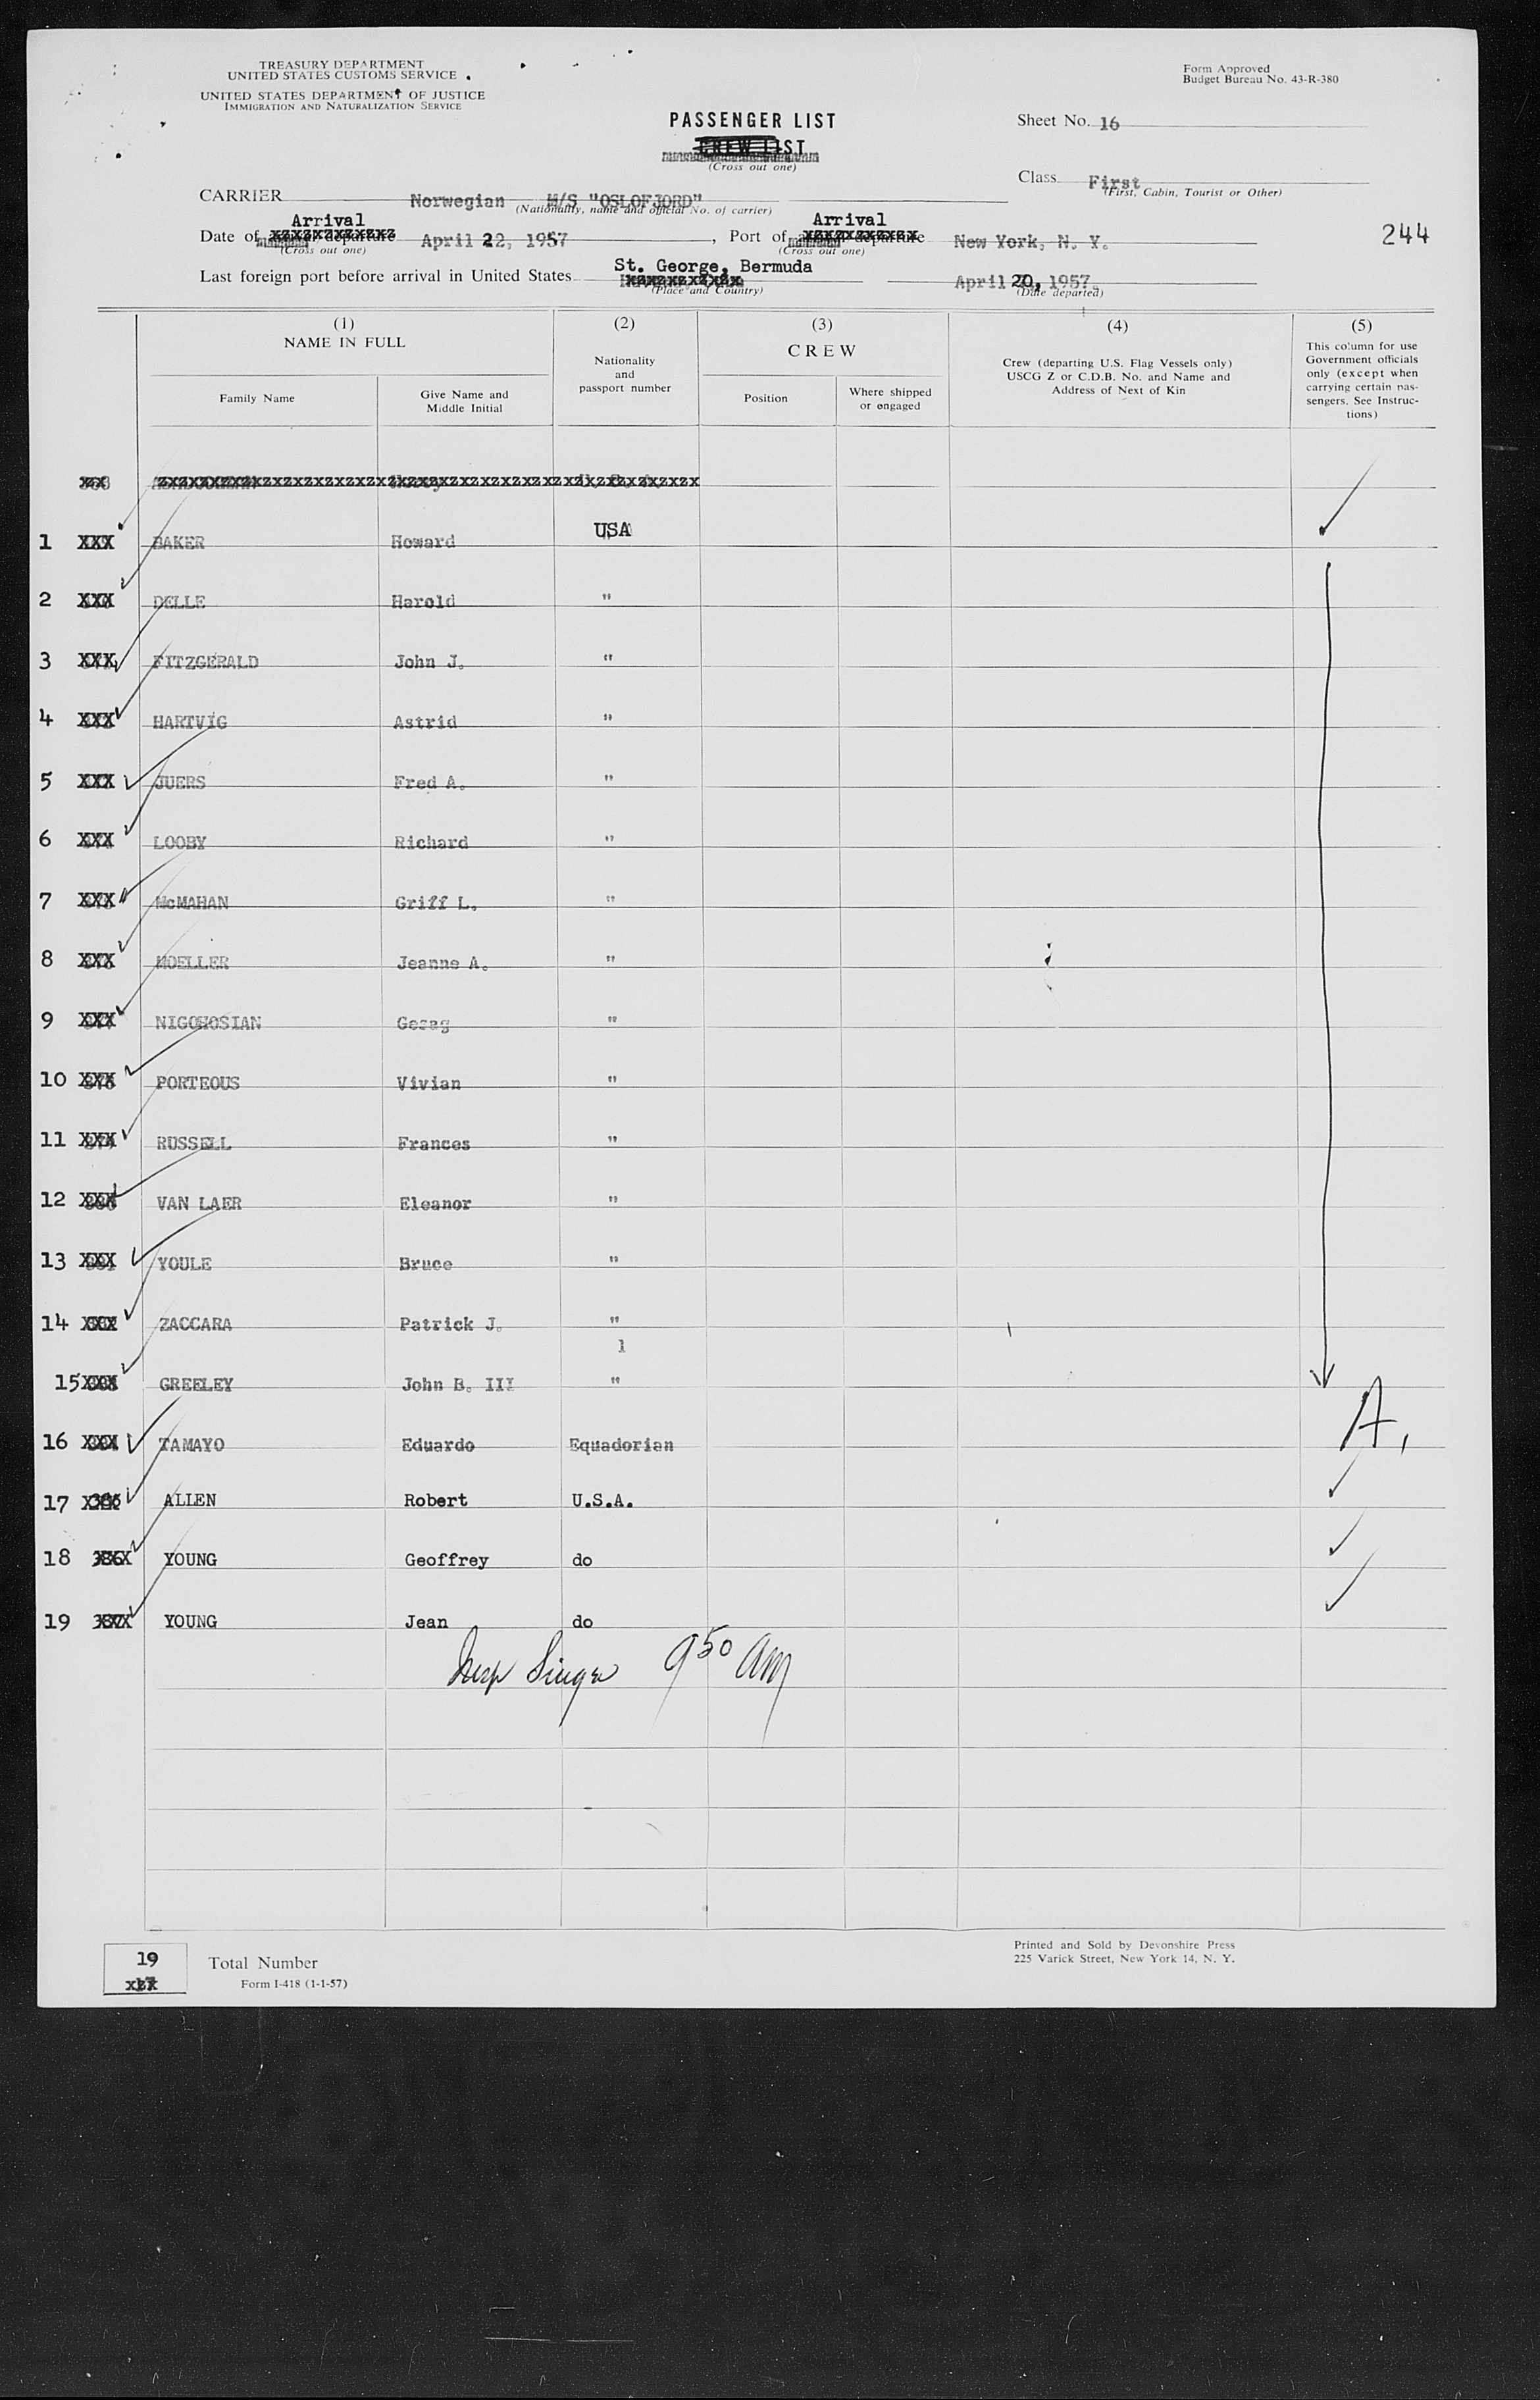 TREASURY DEPARTMENT
UNITED STATES CUSTOMS SERVICE
UNITED STATES DEPARTMENT OF JUSTICE
IMMIGRATION AND NATURALIZATION SERVICE
Form Approved
Budget Bureau No. 43-R-380
PASSENGER LIST
CREW LIST
(Cross out one)
Sheet No. 16
Class First
(First, Cabin, Tourist or Other)
CARRIER Norwegian M/S "OSLOFJORD"
(Nationality, name and official No. of carrier)
Arrival Arrival
Date of departure April 22, 1957, Port of departure New York, N. Y.
(Cross out one) (Cross out one)
244
St. George, Bermuda
Last foreign port before arrival in United States April 20, 1957.
(Place and Country) (Date departed)
(1) (2) (3) (4) (5)
NAME IN FULL
Family Name
Give Name and
Middle Initial
Nationality
and
passport number
CREW
Position
Where shipped
or engaged
Crew (departing U.S. Flag Vessels only)
USCG Z or C.D.B. No. and Name and
Address of Next of Kin
This column for use
Government officials
only (except when
carrying certain pas-
sengers. See Instruc-
tions)
1 XXX BAKER Howard USA
2 XXX DELLE Harold "
3 XXX FITZGERALD John J. "
4 XXX HARTVIG Astrid "
5 XXX JUERS Fred A. "
6 XXX LOOBY Richard "
7 XXX McMAHAN Griff L. "
8 XXX MOELLER Jeanne A. "
9 XXX NIGOHOSIAN Gezag "
10 XXX PORTEOUS Vivian "
11 XXX RUSSELL Frances "
12 XXX VAN LAER Eleanor "
13 XXX YOULE Bruce "
14 XXX ZACCARA Patrick J. "
1
15 XXX GREELEY John B. III "
A.
16 XXX TAMAYO Eduardo Equadorian
17 XXX ALLEN Robert U.S.A.
18 XXX YOUNG Geoffrey do
19 XXX YOUNG Jean do
9 50 AM
19
Total Number
Form I-418 (1-1-57)
Printed and Sold by Devonshire Press
225 Varick Street, New York 14, N. Y.